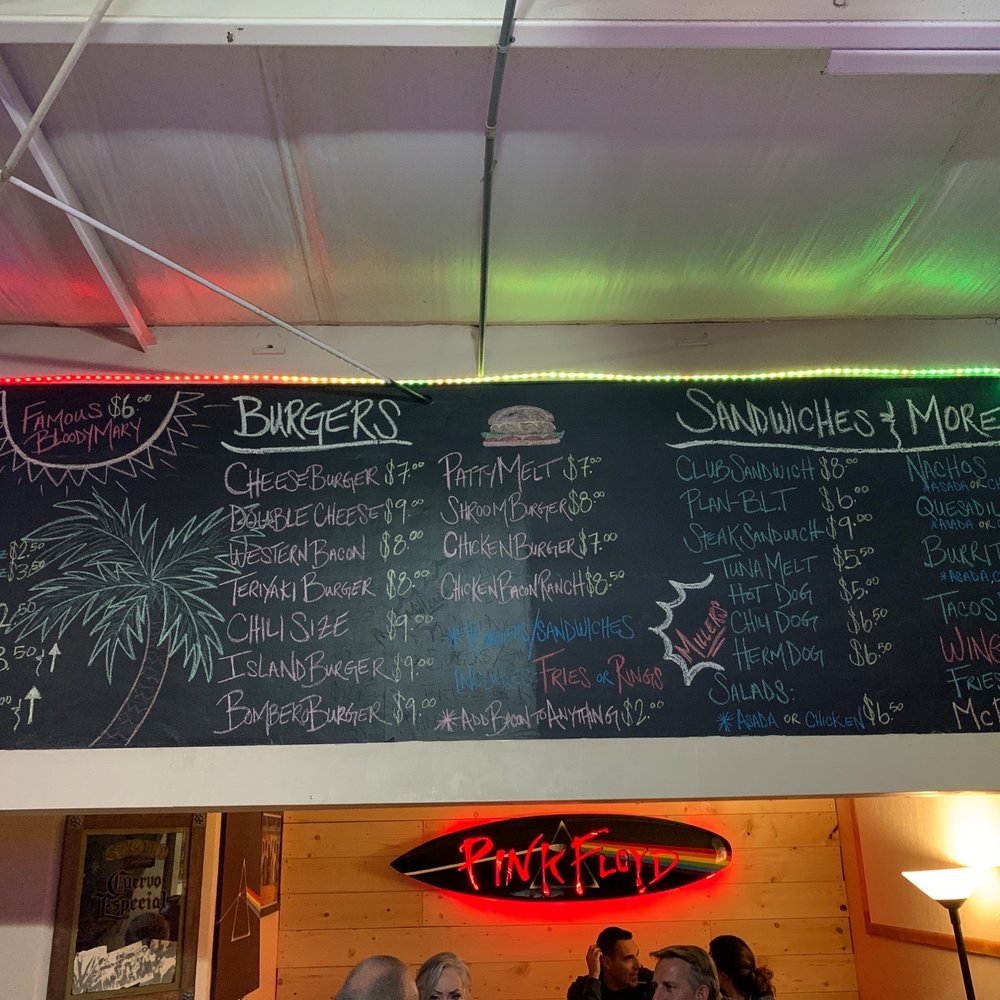 FAMOUS $6.00
BLOODYMARY
$2.50
$3.50
BURGERS
CHEESEBURGER $7.00
DOUBLE CHEESE $9.00
WESTERN BACON $8.00
TERIYAKI BURGER $8.00
CHILI SIZE $9.00
ISLAND BURGER $9.00
BOMBERO BURGER $9.00
PATTY MELT $7.00
SHROOM BURGER $8.00
CHICKEN BURGER $7.00
CHICKEN BACON RANCH $8.50
/SANDWICHES
FRIES OR RINGS
*ADD BACON TO ANYTHING! $2.00
SANDWICHES & MORE
CLUB SANDWICH $8.00
PLAN-B.L.T $6.00
STEAK SANDWICH $9.00
TUNA MELT $5.50
HOT DOG $5.00
CHILI DOG $6.50
HERM DOG $6.50
MILLERS
SALADS:
*ASADA OR CHICKEN $6.50
NACHOS
*ASADA OR
QUESADIL
*ASADA OR
BURRIT
*ASADA,
TACOS
WIN
FRIES
PINK FLOYD
Cuervo
Especial